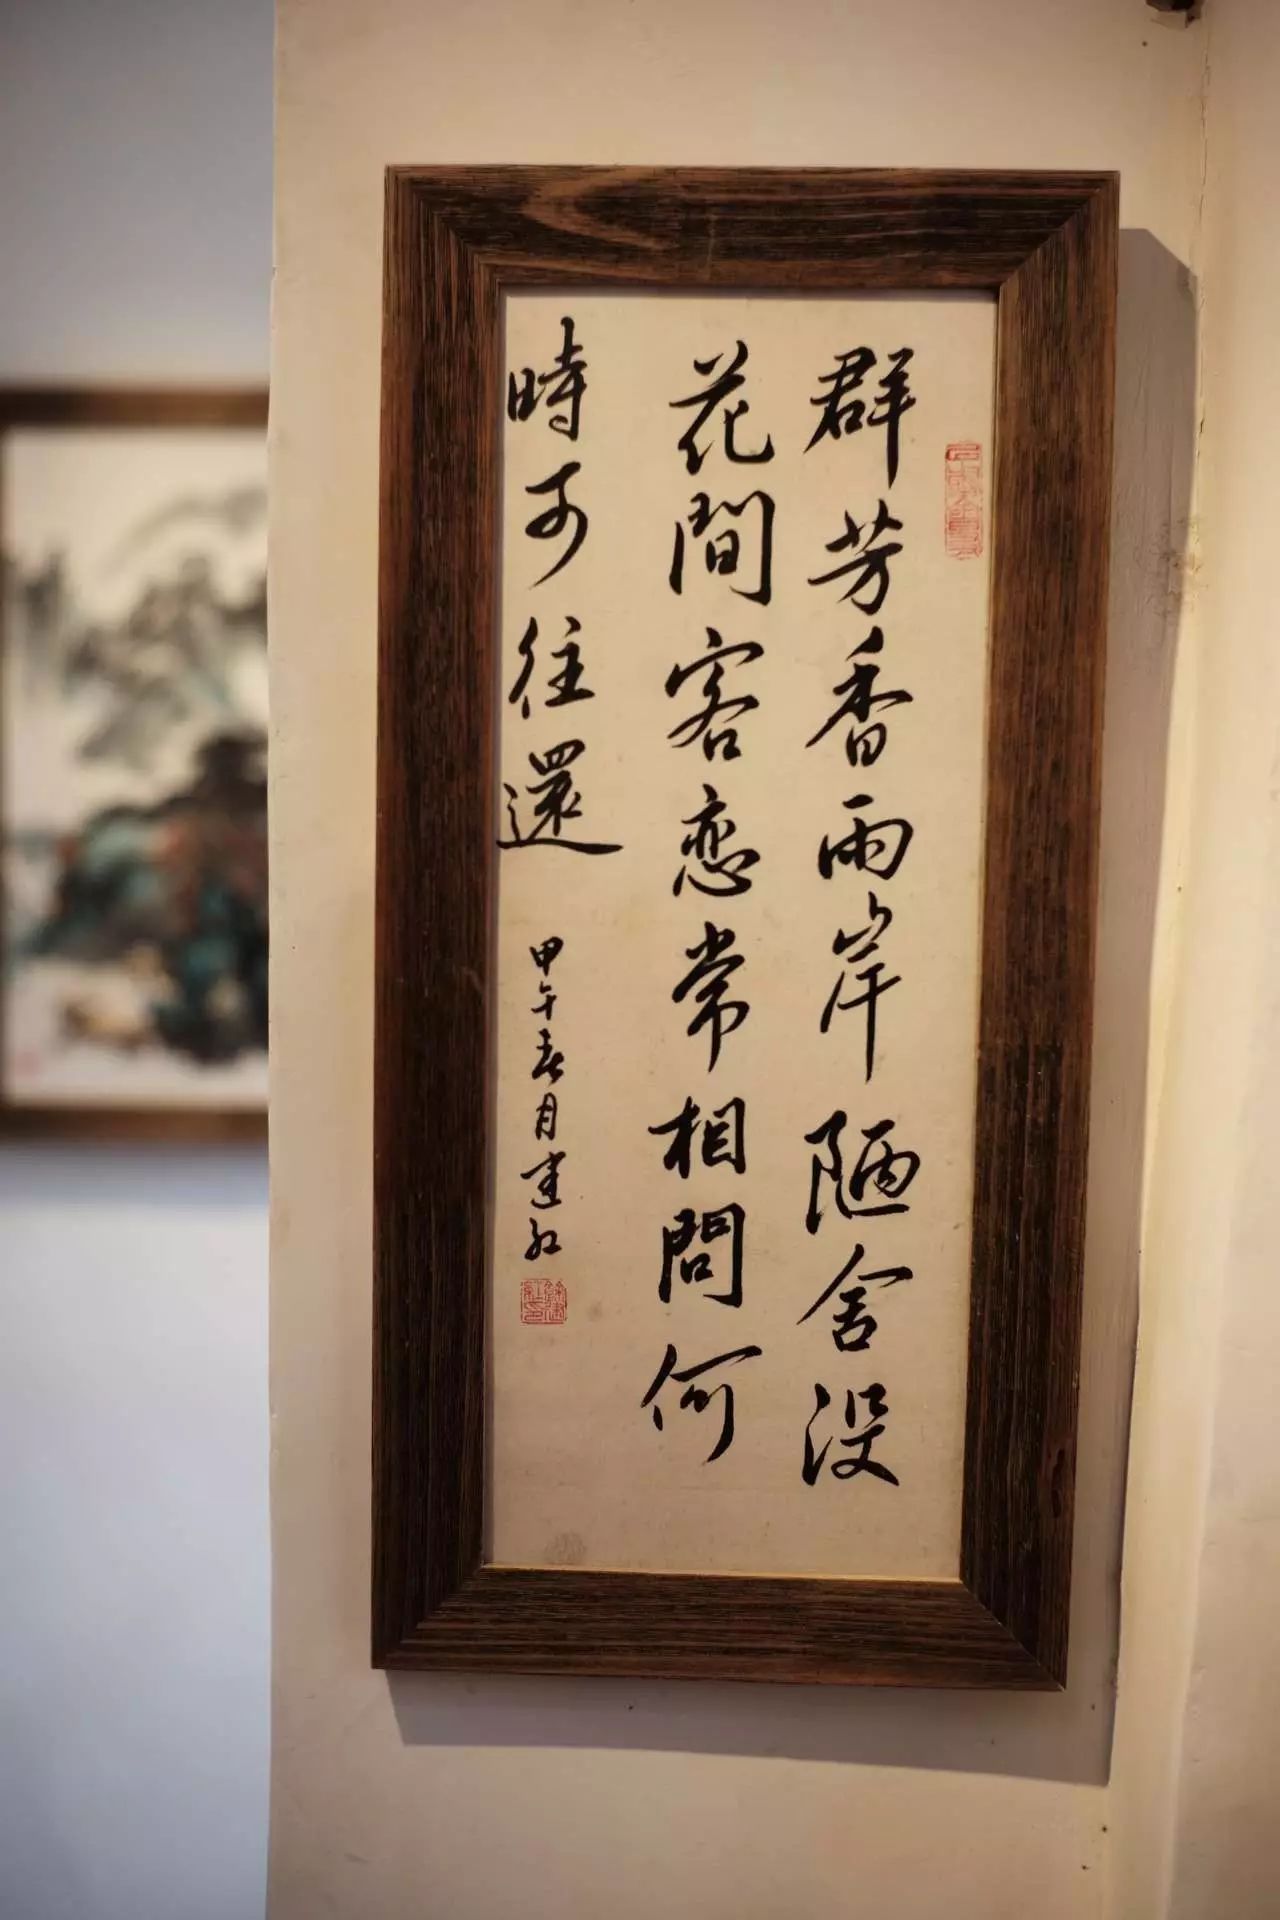 群芳香兩岸陋舍没
花間客恋常相問何
時可往還
甲午春月建红